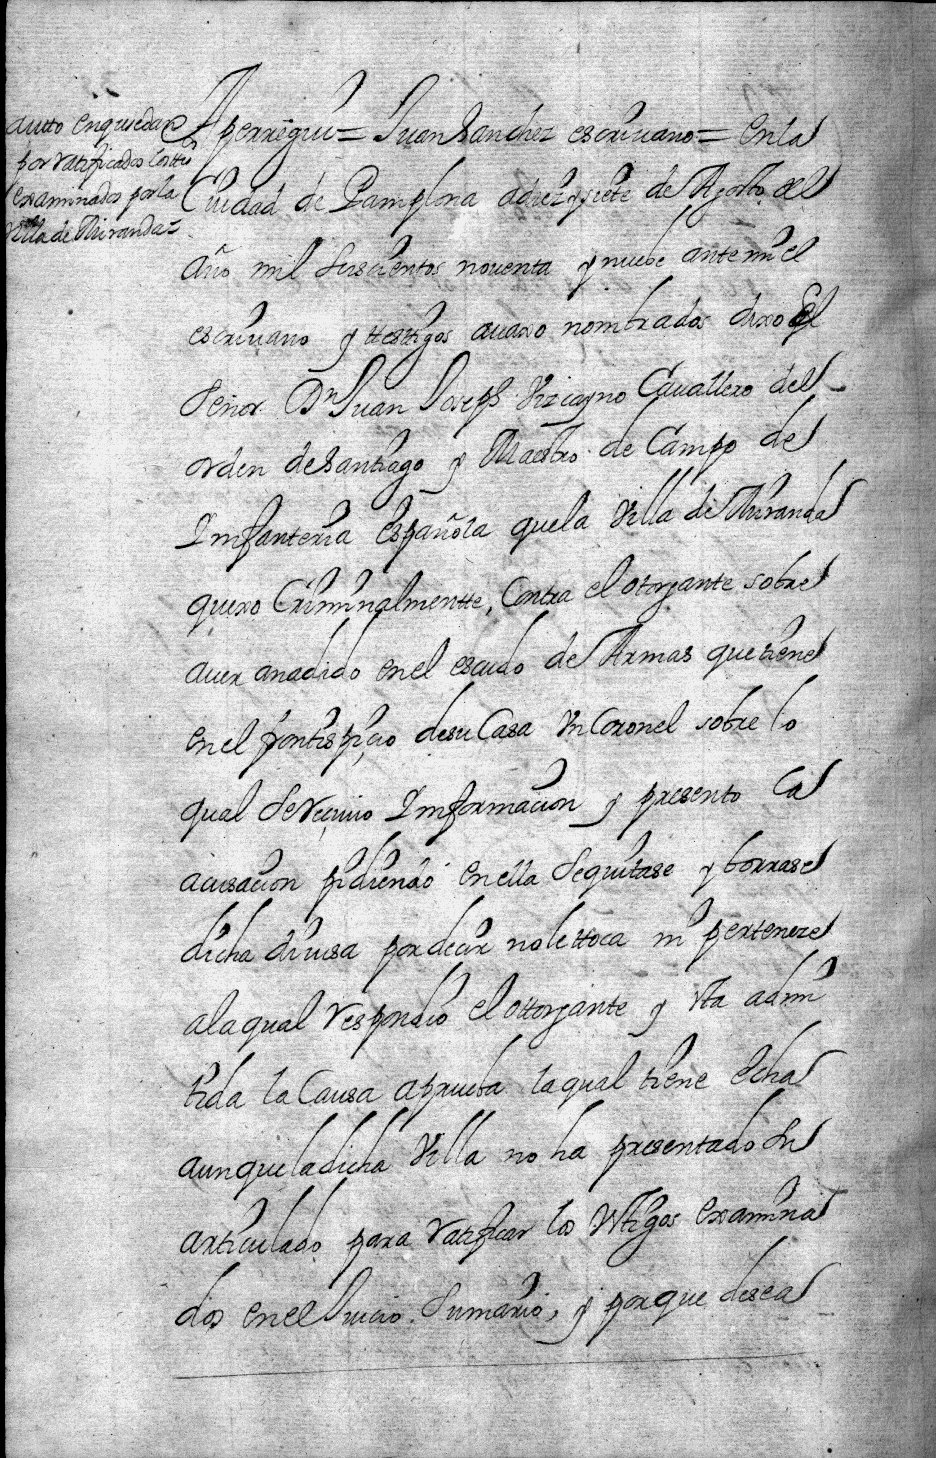 autto en que se dan
por ratificados los ttes
examinados por la
Villa de Miranda=
Aperregui = Juan Sanchez escriuano = En la
Ciudad de Pamplona a diez y siete de Agosto del
año mil Seiscientos noventa y nueve ante mi el
escriuano y ttestigos auaxo nombrados dixo El
Señor Dn Juan Joseph Vizcayno Cauallero del
orden de Santiago y Maestro de Campo de
Imfanteria española que la Villa de Miranda
quexo Criminalmentte, Contra el otorgante sobre
auer anadido en el escudo de Armas que tiene
en el frontispicio de su Casa Un Coronel sobre lo
qual Se reciuio Imformacion y presento la
acusacion pidiendo en ella Se quitase y borrase
dicha diuisa por decir no le ttoca ni pertenece
a la qual respondio el ottorgante y sta admi
tida la Causa aprueba la qual tiene echa
aunque la dicha Villa no ha presentado Su
articulado para ratificar los ttigos examina
dos en el Juicio Sumario, y porque desea